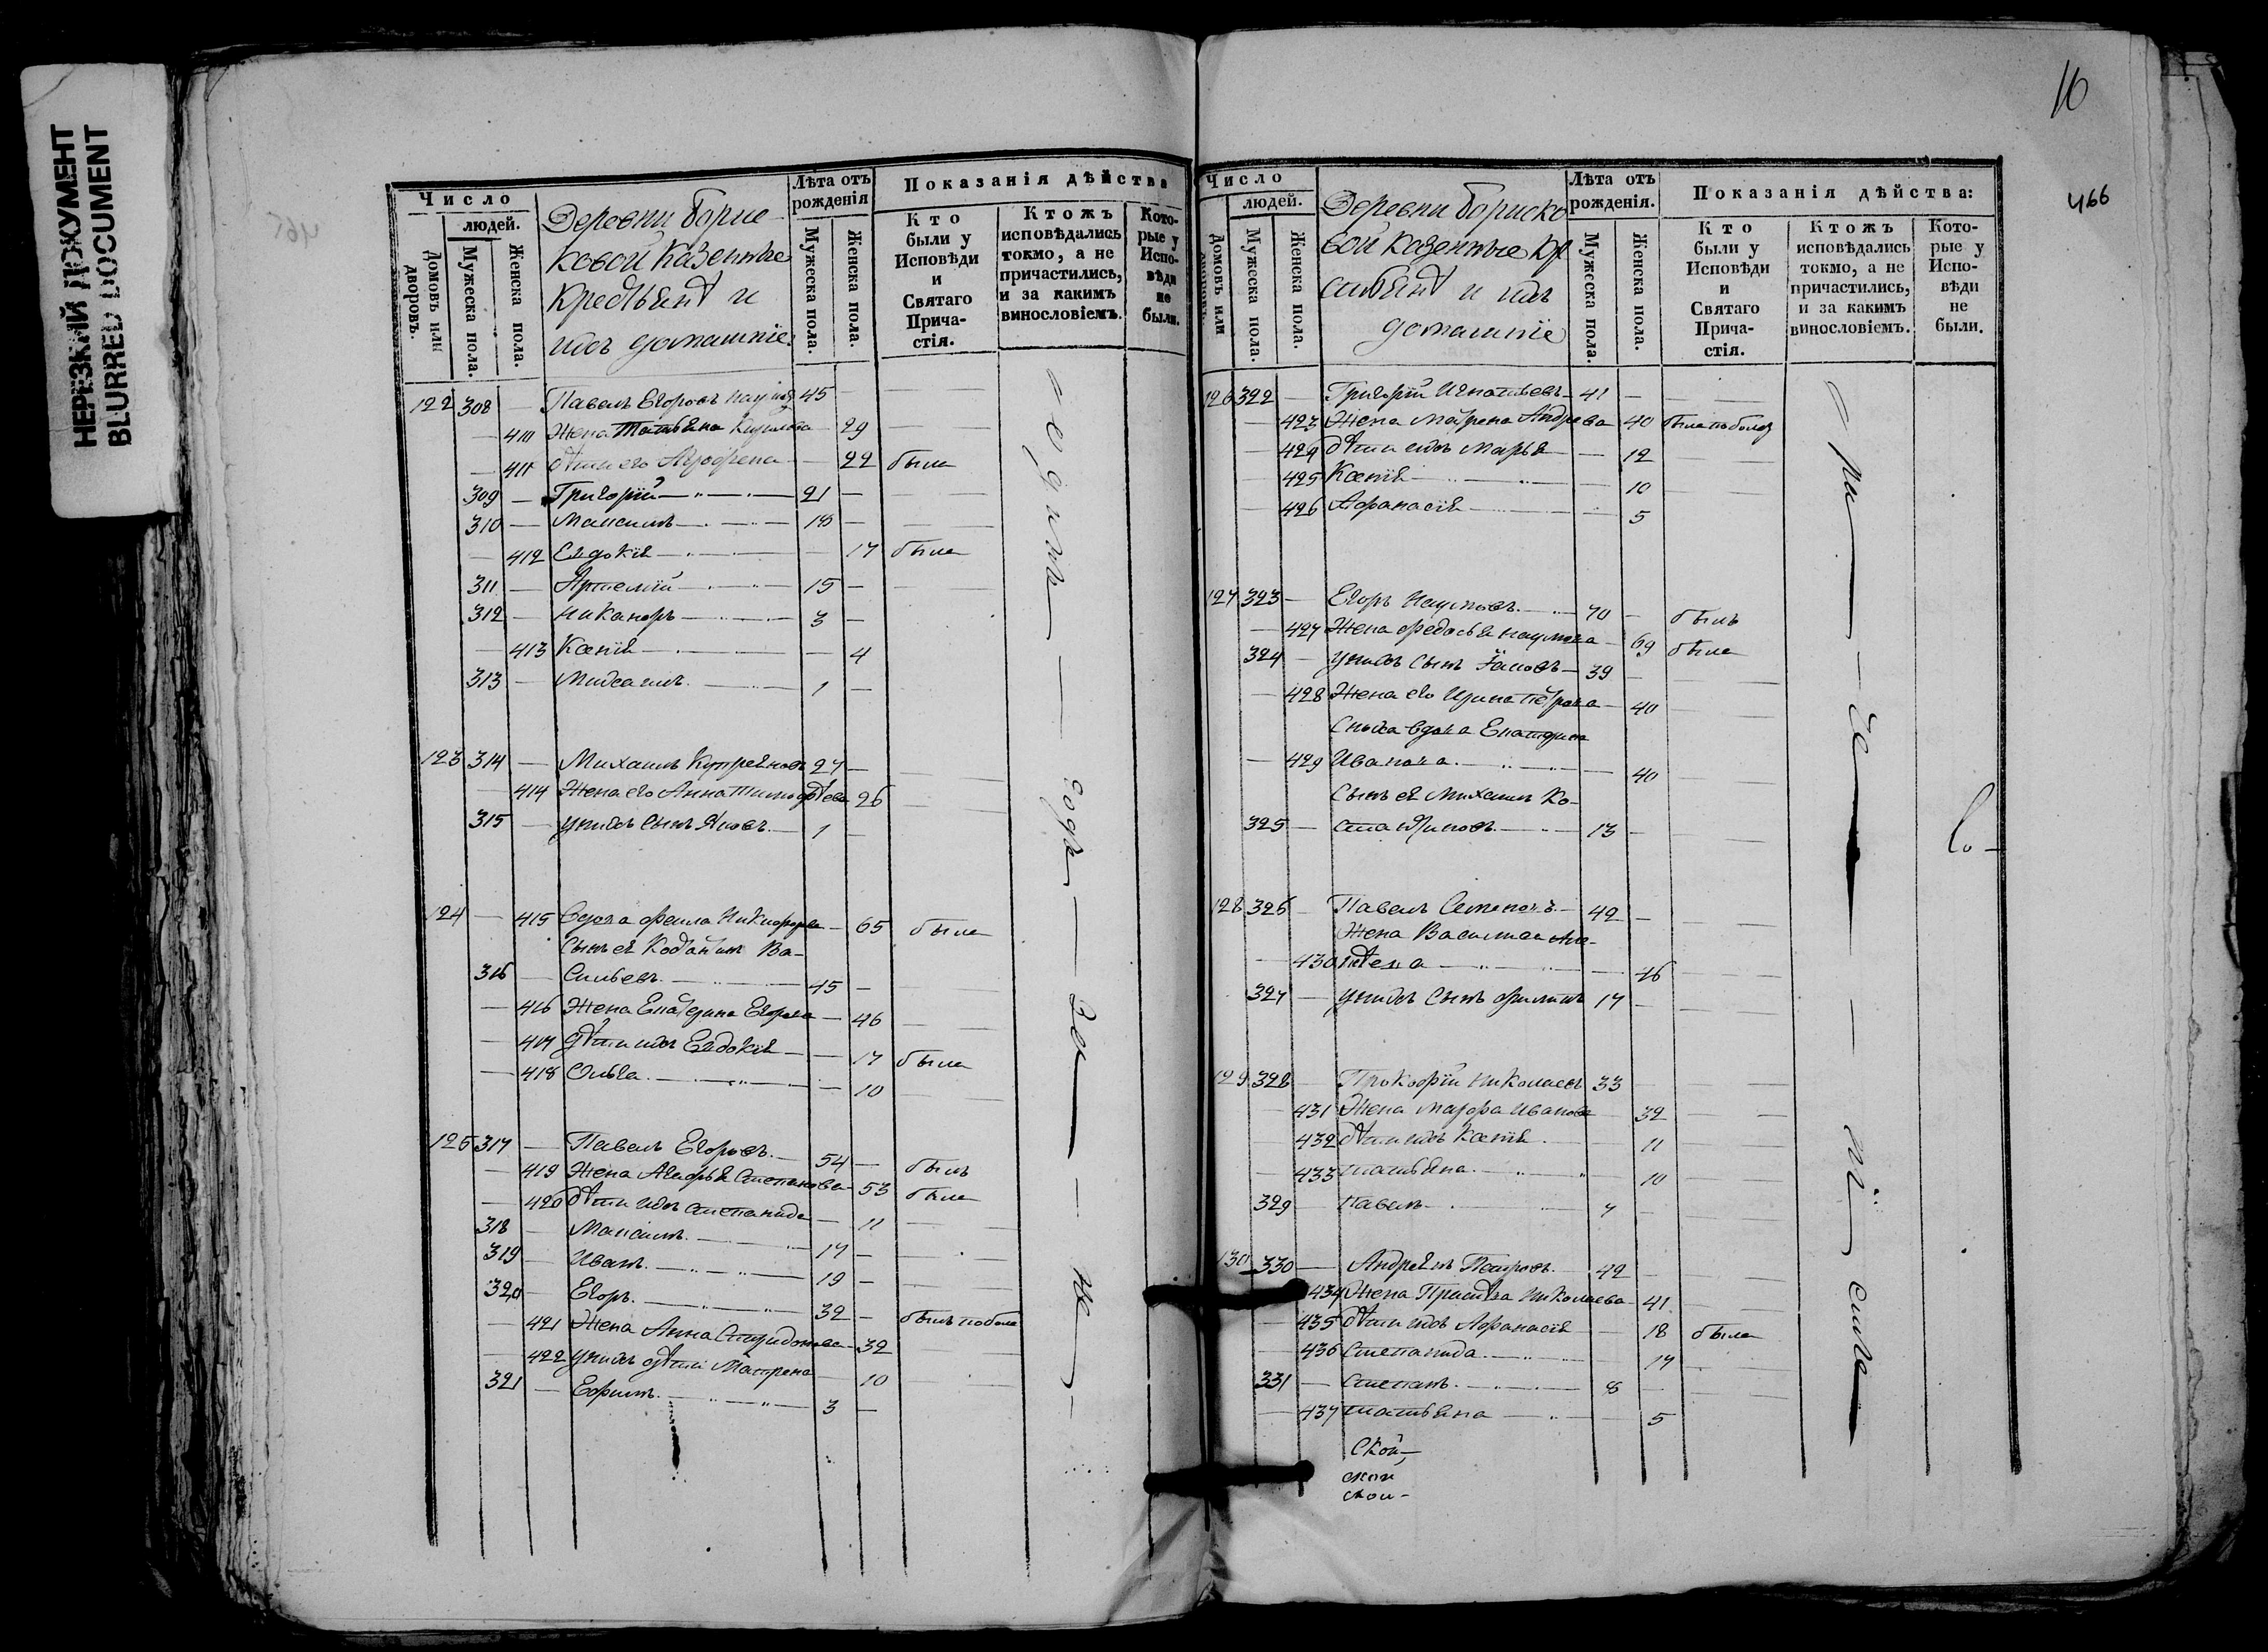 НЕРЕЗКИЙ ДОКУМЕНТ
BLURRED DOCUMENT
Число
людей.
Домовъ или дворовъ.
Мужеска пола.
Женска пола.
Деревни Борис
ковой казенные
крестьянѣ и
ихъ домашніе
Лѣта отъ рожденія
Мужеска пола.
Женска пола.
Показанія дѣйства
Кто были у Исповѣди и Святаго Причастія.
Ктожъ исповѣдались токмо, а не причастились, и за какимъ винословіемъ.
Которые у Исповѣди не были.
122 308 — Павелъ Егоровъ 45 —
— 410 Жена Татьяна 29
— 411 дѣти его Агрофена — 22 была
309 — Григорій — 21 —
310 — Максимъ — 18 —
— 412 Евдокія — 17 была
311 — Артемій — 15 —
312 — Никаноръ — 3 —
— 413 Ксенія — 4
313 — Михаилъ — 1 —
123 314 — Михаилъ Купреяновъ 27 —
— 414 Жена его Анна Тимофѣева 26
315 — у нихъ сынъ Яковъ — 1 —
124 — 415 Вдова Фекла Никифорова — 65 была
Сынъ ея Ва-
316 — сильевъ. — 45 —
— 416 Жена Екатерина Егорова — 46
— 417 дѣти ихъ Евдокія — 17 была
— 418 Ольга. — 10
125 317 — Павелъ Егоровъ. — 54 — былъ
— 419 Жена Агафья Степанова — 53 была
— 420 дѣти ихъ Степанида — 11
318 — Максимъ. — 17 —
319 — Иванъ. — 19 —
320 — Егоръ. — 32 — былъ по боле
— 421 Жена Анна Спиридонова — 32
— 422 у нихъ дѣти Матрена — 10
321 — Ефимъ. — 3 —
16
466
Число
людей.
Домовъ или
Мужеска пола.
Женска пола.
Деревни Бориско
вой казенные кре
стьянѣ и ихъ
домашніе
Лѣта отъ рожденія.
Мужеска пола.
Женска пола.
Показанія дѣйства:
Кто были у Исповѣди и Святаго Причастія.
Ктожъ исповѣдались токмо, а не причастились, и за какимъ винословіемъ.
Которые у Исповѣди не были.
126 322 — Григорій Игнатьевъ — 41 —
— 423 Жена Матрена Андреева 40 была по болез
— 424 дѣти ихъ Марья — 12
— 425 Ксенія — 10
— 426 Афанасія — 5
127 323 — Егоръ Наумовъ. — 70 — былъ
— 427 Жена Федосья Наумова — 69 была
324 — у нихъ сынъ Іаковъ — 39 —
— 428 Жена его Ирина Петрова — 40
Сноха вдова Екатерина
— 429 Иванова. — 40
Сынъ ея Михаилъ Ко-
325 — стантиновъ. — 13 —
128 326 — Павелъ Семеновъ. — 42 —
Жена Василиса Ма-
— 430 твѣева — 46
327 — у нихъ сынъ Филипъ 17 —
129 328 Прокофій Николаевъ 33
431 Жена Марфа Иванова 32
432 дѣти ихъ Ксенія. 11
433 Татьяна. — 10
329 Павелъ — 7
130 330 — Андреянъ Петровъ. — 42 —
434 Жена Прасковья Николаева — 41
435 дѣти ихъ Афанасія — 18 была
436 Степанида. — 14
331 — Степанъ. — 8 —
437 Татьяна — 5
Ской,